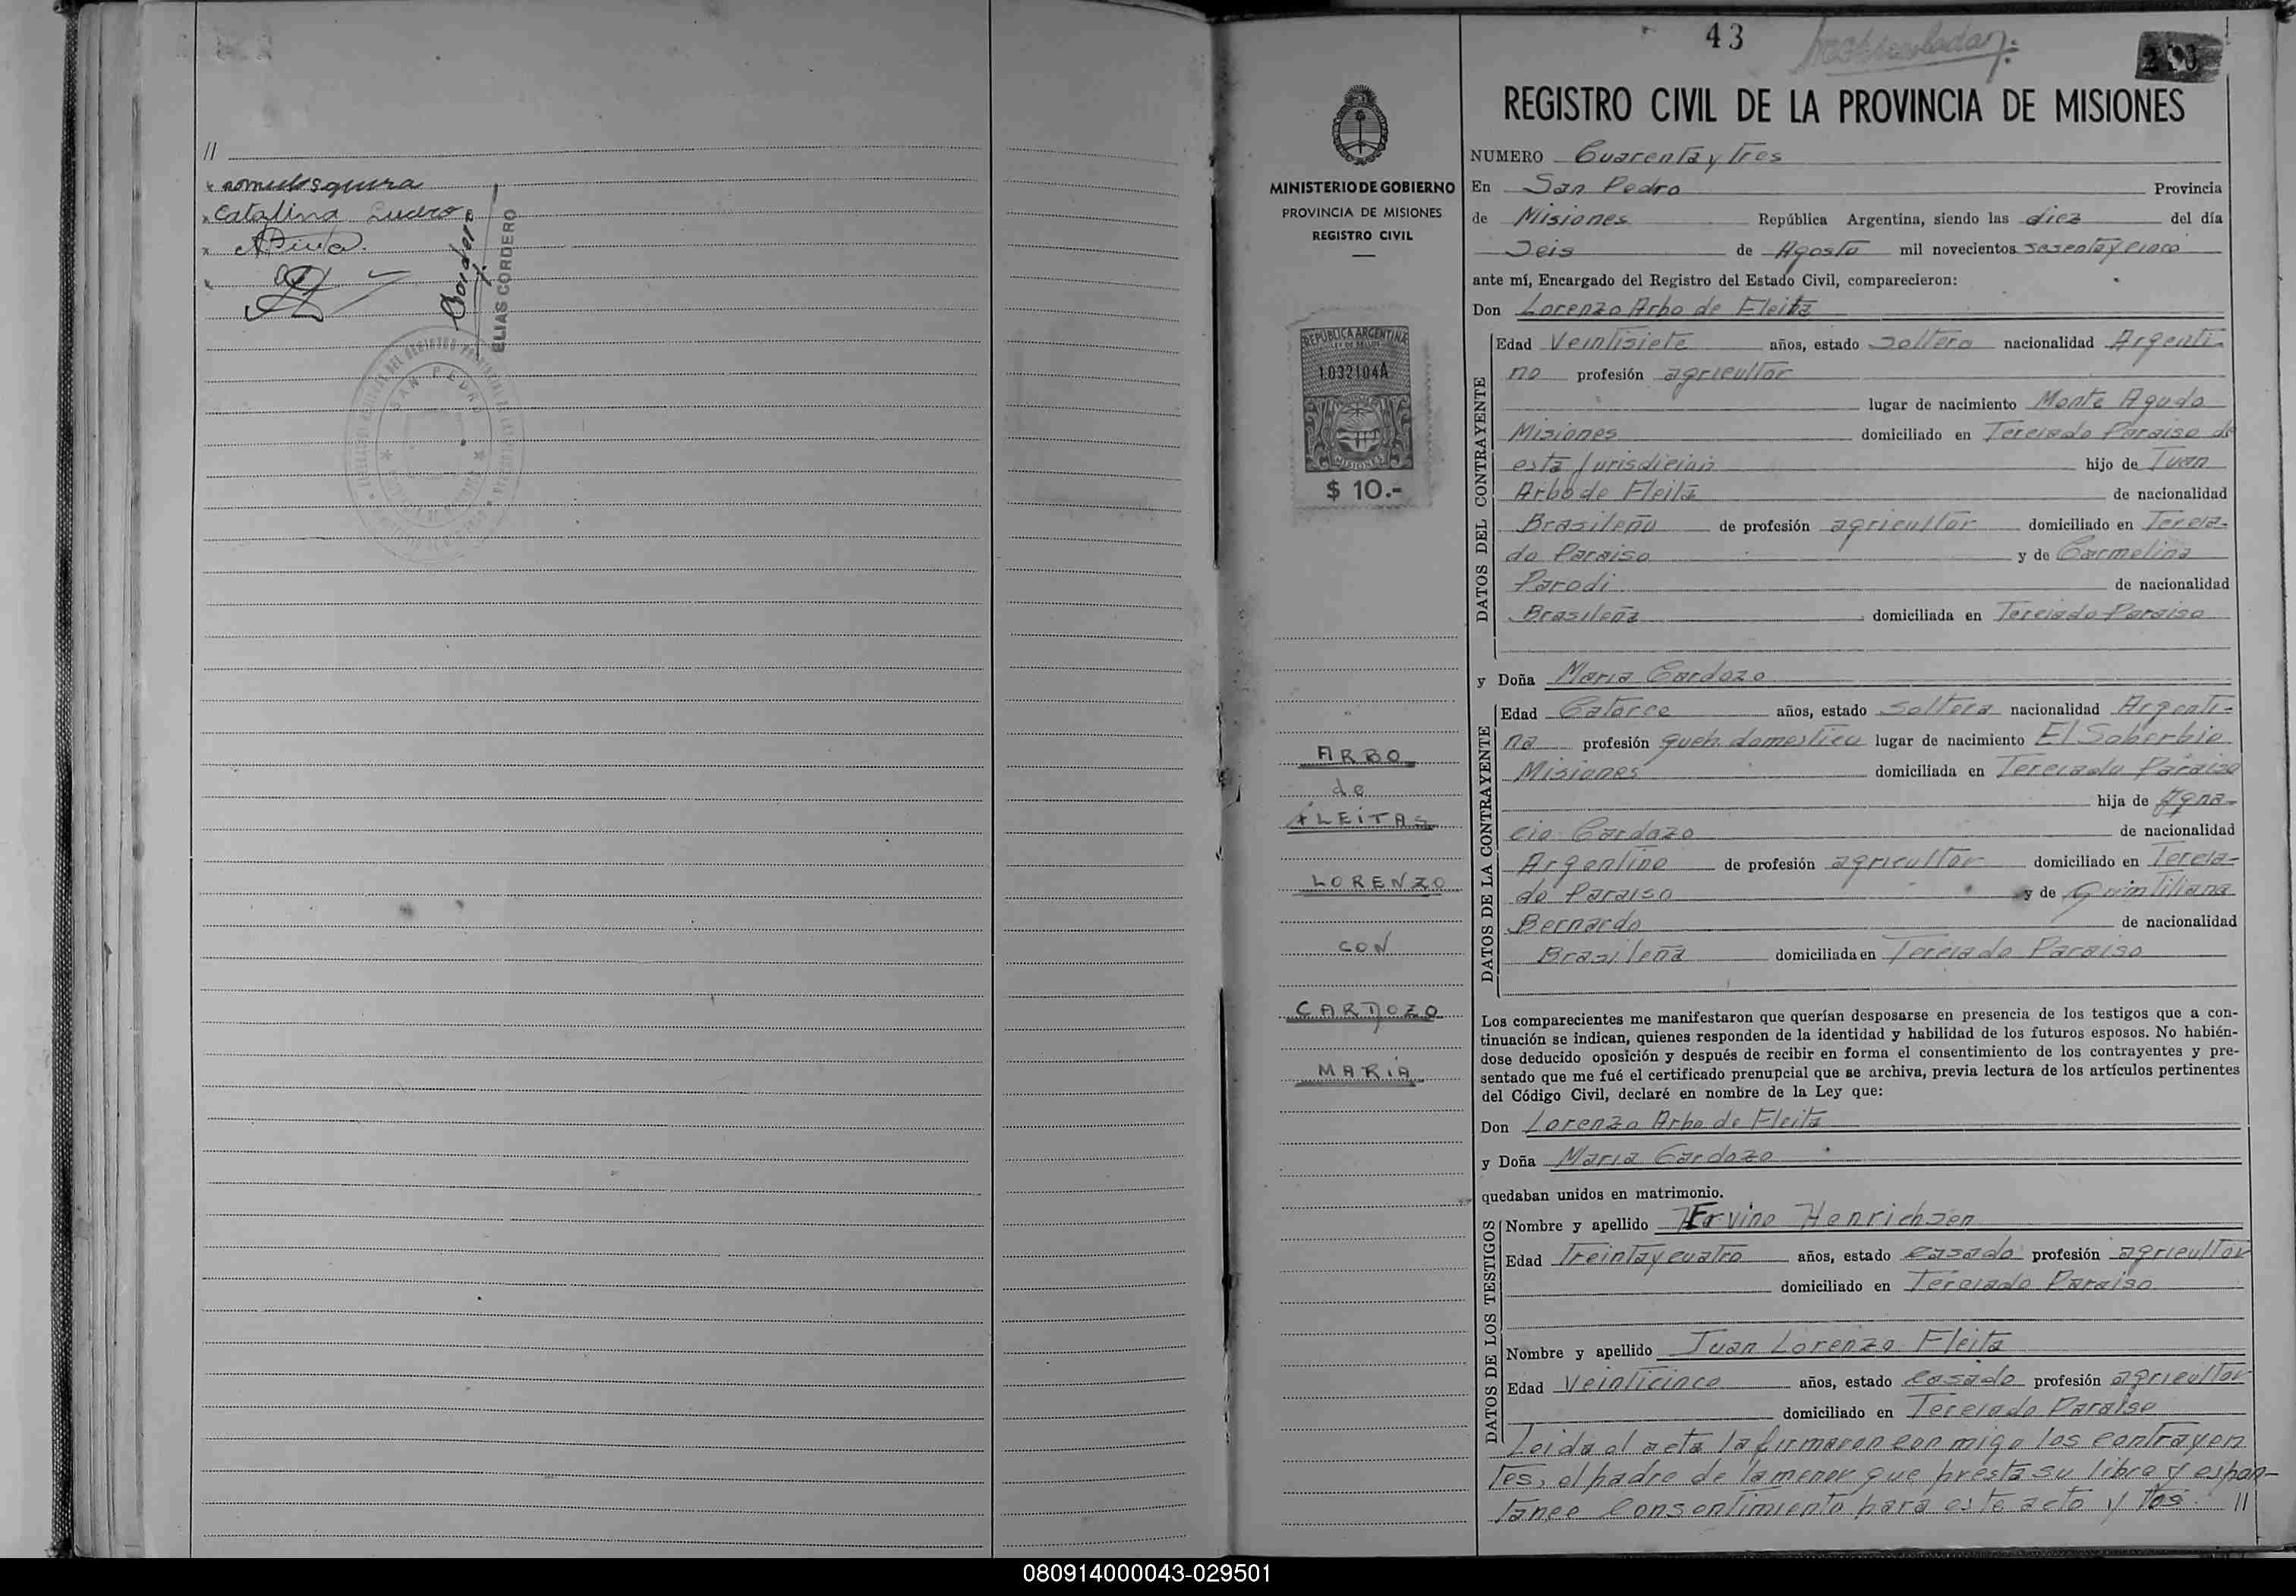 //
Catalina Lucero
ELIAS CORDERO
SAN PEDRO
43
MINISTERIO DE GOBIERNO
PROVINCIA DE MISIONES
REGISTRO CIVIL
REPUBLICA ARGENTINA
1032104A
MISIONES
$ 10.-
ARBO
de
FLEITAS
LORENZO
CON
CARDOZO
MARIA
REGISTRO CIVIL DE LA PROVINCIA DE MISIONES
NUMERO Cuarenta y tres
En San Pedro Provincia
de Misiones República Argentina, siendo las diez del día
Seis de Agosto mil novecientos sesenta y cinco
ante mí, Encargado del Registro del Estado Civil, comparecieron:
Don Lorenzo Arbo de Fleita
DATOS DEL CONTRAYENTE
Edad Veintisiete años, estado Soltero nacionalidad Argenti-
no profesión agricultor
lugar de nacimiento Monte Agudo
Misiones domiciliado en Terciado Paraiso de
esta Jurisdicion hijo de Juan
Arbo de Fleita de nacionalidad
Brasileño de profesión agricultor domiciliado en Tercia-
do Paraiso y de Carmelina
Parodi de nacionalidad
Brasileña domiciliada en Terciado Paraiso
y Doña Maria Cardozo
DATOS DE LA CONTRAYENTE
Edad Catorce años, estado soltera nacionalidad Argenti-
na profesión queh. domestico lugar de nacimiento El Soberbio
Misiones domiciliada en Terciado Paraiso
hija de Ygna-
cio Cardozo de nacionalidad
Argentino de profesión agricultor domiciliado en Tercia-
do Paraiso y de Quintiliana
Bernardo de nacionalidad
Brasileña domiciliada en Terciado Paraiso
Los comparecientes me manifestaron que querían desposarse en presencia de los testigos que a con-
tinuación se indican, quienes responden de la identidad y habilidad de los futuros esposos. No habién-
dose deducido oposición y después de recibir en forma el consentimiento de los contrayentes y pre-
sentado que me fué el certificado prenupcial que se archiva, previa lectura de los artículos pertinentes
del Código Civil, declaré en nombre de la Ley que:
Don Lorenzo Arbo de Fleita
y Doña Maria Cardozo
quedaban unidos en matrimonio.
DATOS DE LOS TESTIGOS
Nombre y apellido Ervino Henrichsen
Edad Treinta y cuatro años, estado casado profesión agricultor
domiciliado en Terciado Paraiso
Nombre y apellido Juan Lorenzo Fleita
Edad Veinticinco años, estado casado profesión agricultor
domiciliado en Terciado Paraiso
Leida el acta la firmaron con migo los contrayen
tes, el padre de la menor que presta su libre y espon-
taneo consentimiento para este acto y los //
080914000043-029501